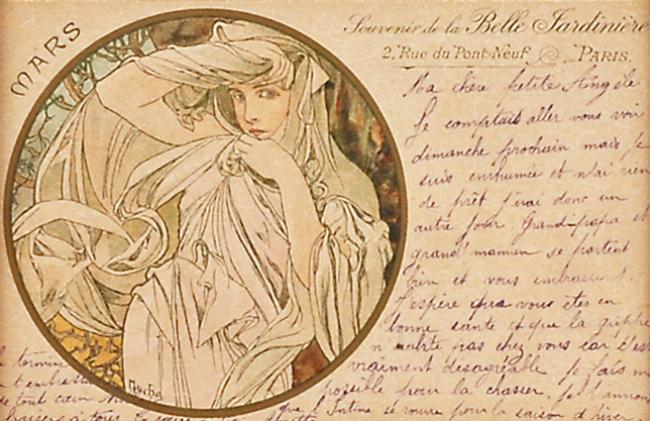 MARS
Souvenir de la Belle Jardinière
2, Rue du Pont-Neuf PARIS.
Ma chère petite Angèle
Je comptais aller vous voir
dimanche prochain mais je
suis enrhumée et n'ai rien
de prêt j'irai donc un
autre jour. Grand-papa et
grand'maman se portent
bien et vous embrassent.
J'espère que vous etes en
bonne santé et que la grippe
pas chez vous car c'est
vraiment desagréable. Je fais mon
possible pour la chasser. Je t'annonce
que pour la saison d'hiver.
termine
t'embrassant
de tout cœur
baisers à tous
Mucha